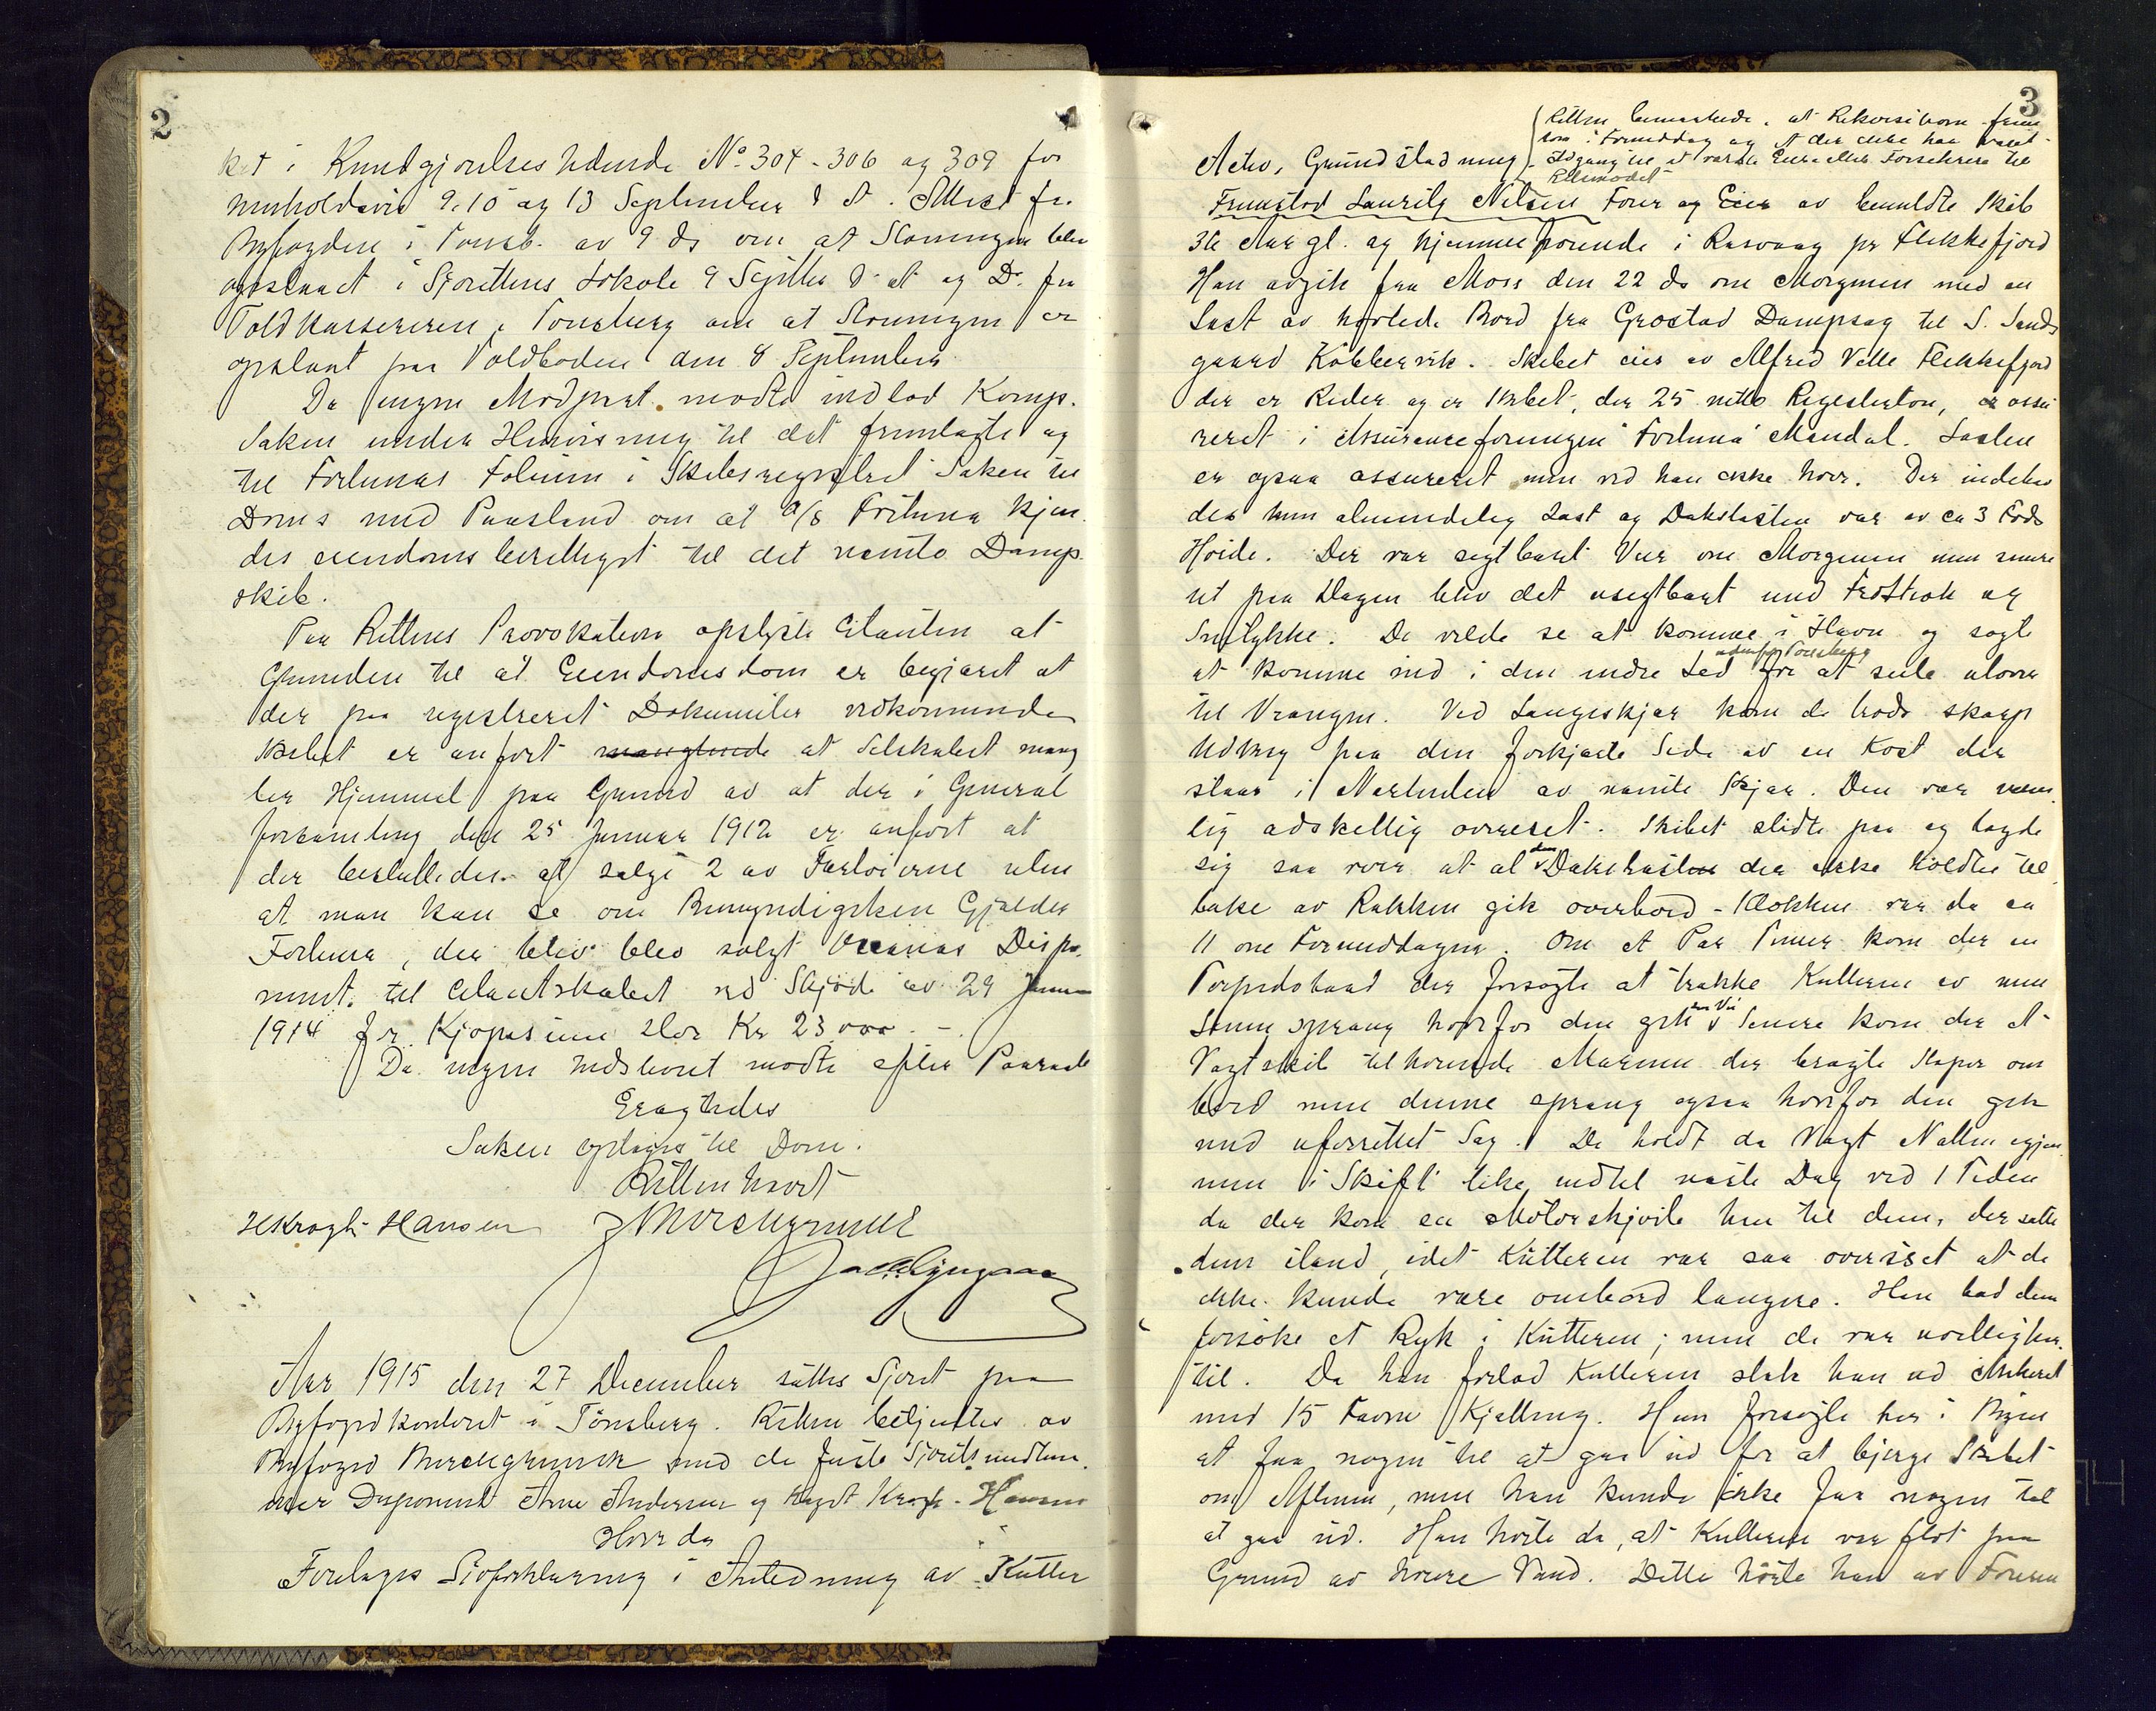 2
ket i Kundgjørelsestidende No 304-306 og 309 for
henholdsvis 9, 10 og 13 September d. A. Attest fra
Byfogden i Tønsb. av 9 ds om at Stevningen blev
opslaaet i Sjørettens Lokale 9 Septbr d. A. og Do fra
Toldkassereren i Tønsberg om at Stevningen er
opslaat paa Toldboden den 8 September
Da ingen Modpart mødte indlod Komp.
Saken under Henvisning til det fremlagte og
til Fortunas Folium i Skibsregistret Saken til
Doms med Paastand om at D/S Fortuna kjen-
des eiendomsberettiget til det nævnte Damp-
skib.
Paa Rettens Provokation oplyste Citanten at
Grunden til at Eiendomsdom er begjæret at
der paa registreret Dokumenter vedkommende
Skibet er anført manglende at Selskabet mang
ler Hjemmel paa Grund av at der i General
forsamling den 25 Januar 1912 er anført at
der besluttedes at sælge 2 av Fartøierne uten
at man kan se om Bemyndigelsen Gjælder
Fortuna, der blev blev solgt Disp.
til Citantskabet ved Skjøde av 29 Januar
1914 for Kjøpesum stor Kr 23 000 -
Da ingen Indstevnt mødte efter Paaraab
Eragtedes
Saken optages til Dom.
Retten hævet
HKrogh-Hansen
Aar 1915 den 27 December sattes Sjøret paa
Byfogedkontoret i Tönsberg. Retten betjentes av
Byfoged med de faste Sjøretsmedlem-
mer Disponent Arne Andersen og Krogh-Hansen
Hvor da
Foretages Sjøforklaring i Anledning av Kutter
3
Retten bemerkede, at Rekvisitionen frem
kom i Formiddag og at der ikke har været
Adgang til at varsle Eier eller Assurandører til
Retsmødet
Activ, Grundstødning
Fremstod Lauritz Nilsen Fører og Eier av bemeldte Skib
36 Aar gl. og hjemmehørende i Rasvaag pr Flekkefjord
Han avgik fra Moss den 22 ds om Morgenen med en
Last av høvlede Bord fra Grøstad Dampsag til S. Sands
gaard Kobbervik. Skibet eies av Alfred Velle Flekkefjord
der er Reder og er Skibet, der 25 netto Registerton, er assu
reret i Assuranceforeningen "Fortuna" Mandal. Lasten
er ogsaa assureret men ved han ikke hvor. Der indehav
des kun almindelig Last og Dækslasten var av ca 3 Fods
Høide. Der var sigtbart Veir om Morgenen men senere
ut paa Dagen blev det usigtbart med Frostrøk og
Snetykke. De vilde se at komme i Havn og søgte
at komme ind i den indre Led udenfor Tønsberg for at seile
til Vrængen. Ved Langeskjær kom de trods skarp
Udkig paa den forkjærte Side av en Kost der
staar i Nærheden av nævnte Skjær. Den var nem
lig adskillig overiset. Skibet slidte paa og lagde
sig saa over at al den Dækslasten der ikke holdtes til
bake av Rækken gik overbord - Klokken var da ca
11 om Formiddagen. Om et Par Timer kom der en
Torpedobaad der forsøgte at trække Kutteren av men
Linen sprang hvorfor den gik sin Vei Senere kom der et
Vagtskib tilhørende Marinen der bragte Slæper om
bord men denne sprang ogsaa hvorfor den gik
med uforrettet Sag. De holdt da Vagt Natten igjen
nem i Skift like indtil næste Dag ved 1 Tiden
da der kom en Motorskjøite hen til dem, der satte
dem iland, idet Kutteren var saa overiset at de
ikke kunde være ombord længere. Han bad dem
forsøke et Ryk i Kutteren; men de var uvillige her
til. Da han forlod Kutteren stak han ud Ankeret
med 15 Favne Kjetting. Han forsøgte her i Byen
at faa nogen til at gaa ud for at bjerge Skibet
om Aftenen, men han kunde ikke faa nogen til
at gaa ud. Han hørte da, at Kutteren var flot paa
Grund av høiere Vand. Dette hørte han av Føreren